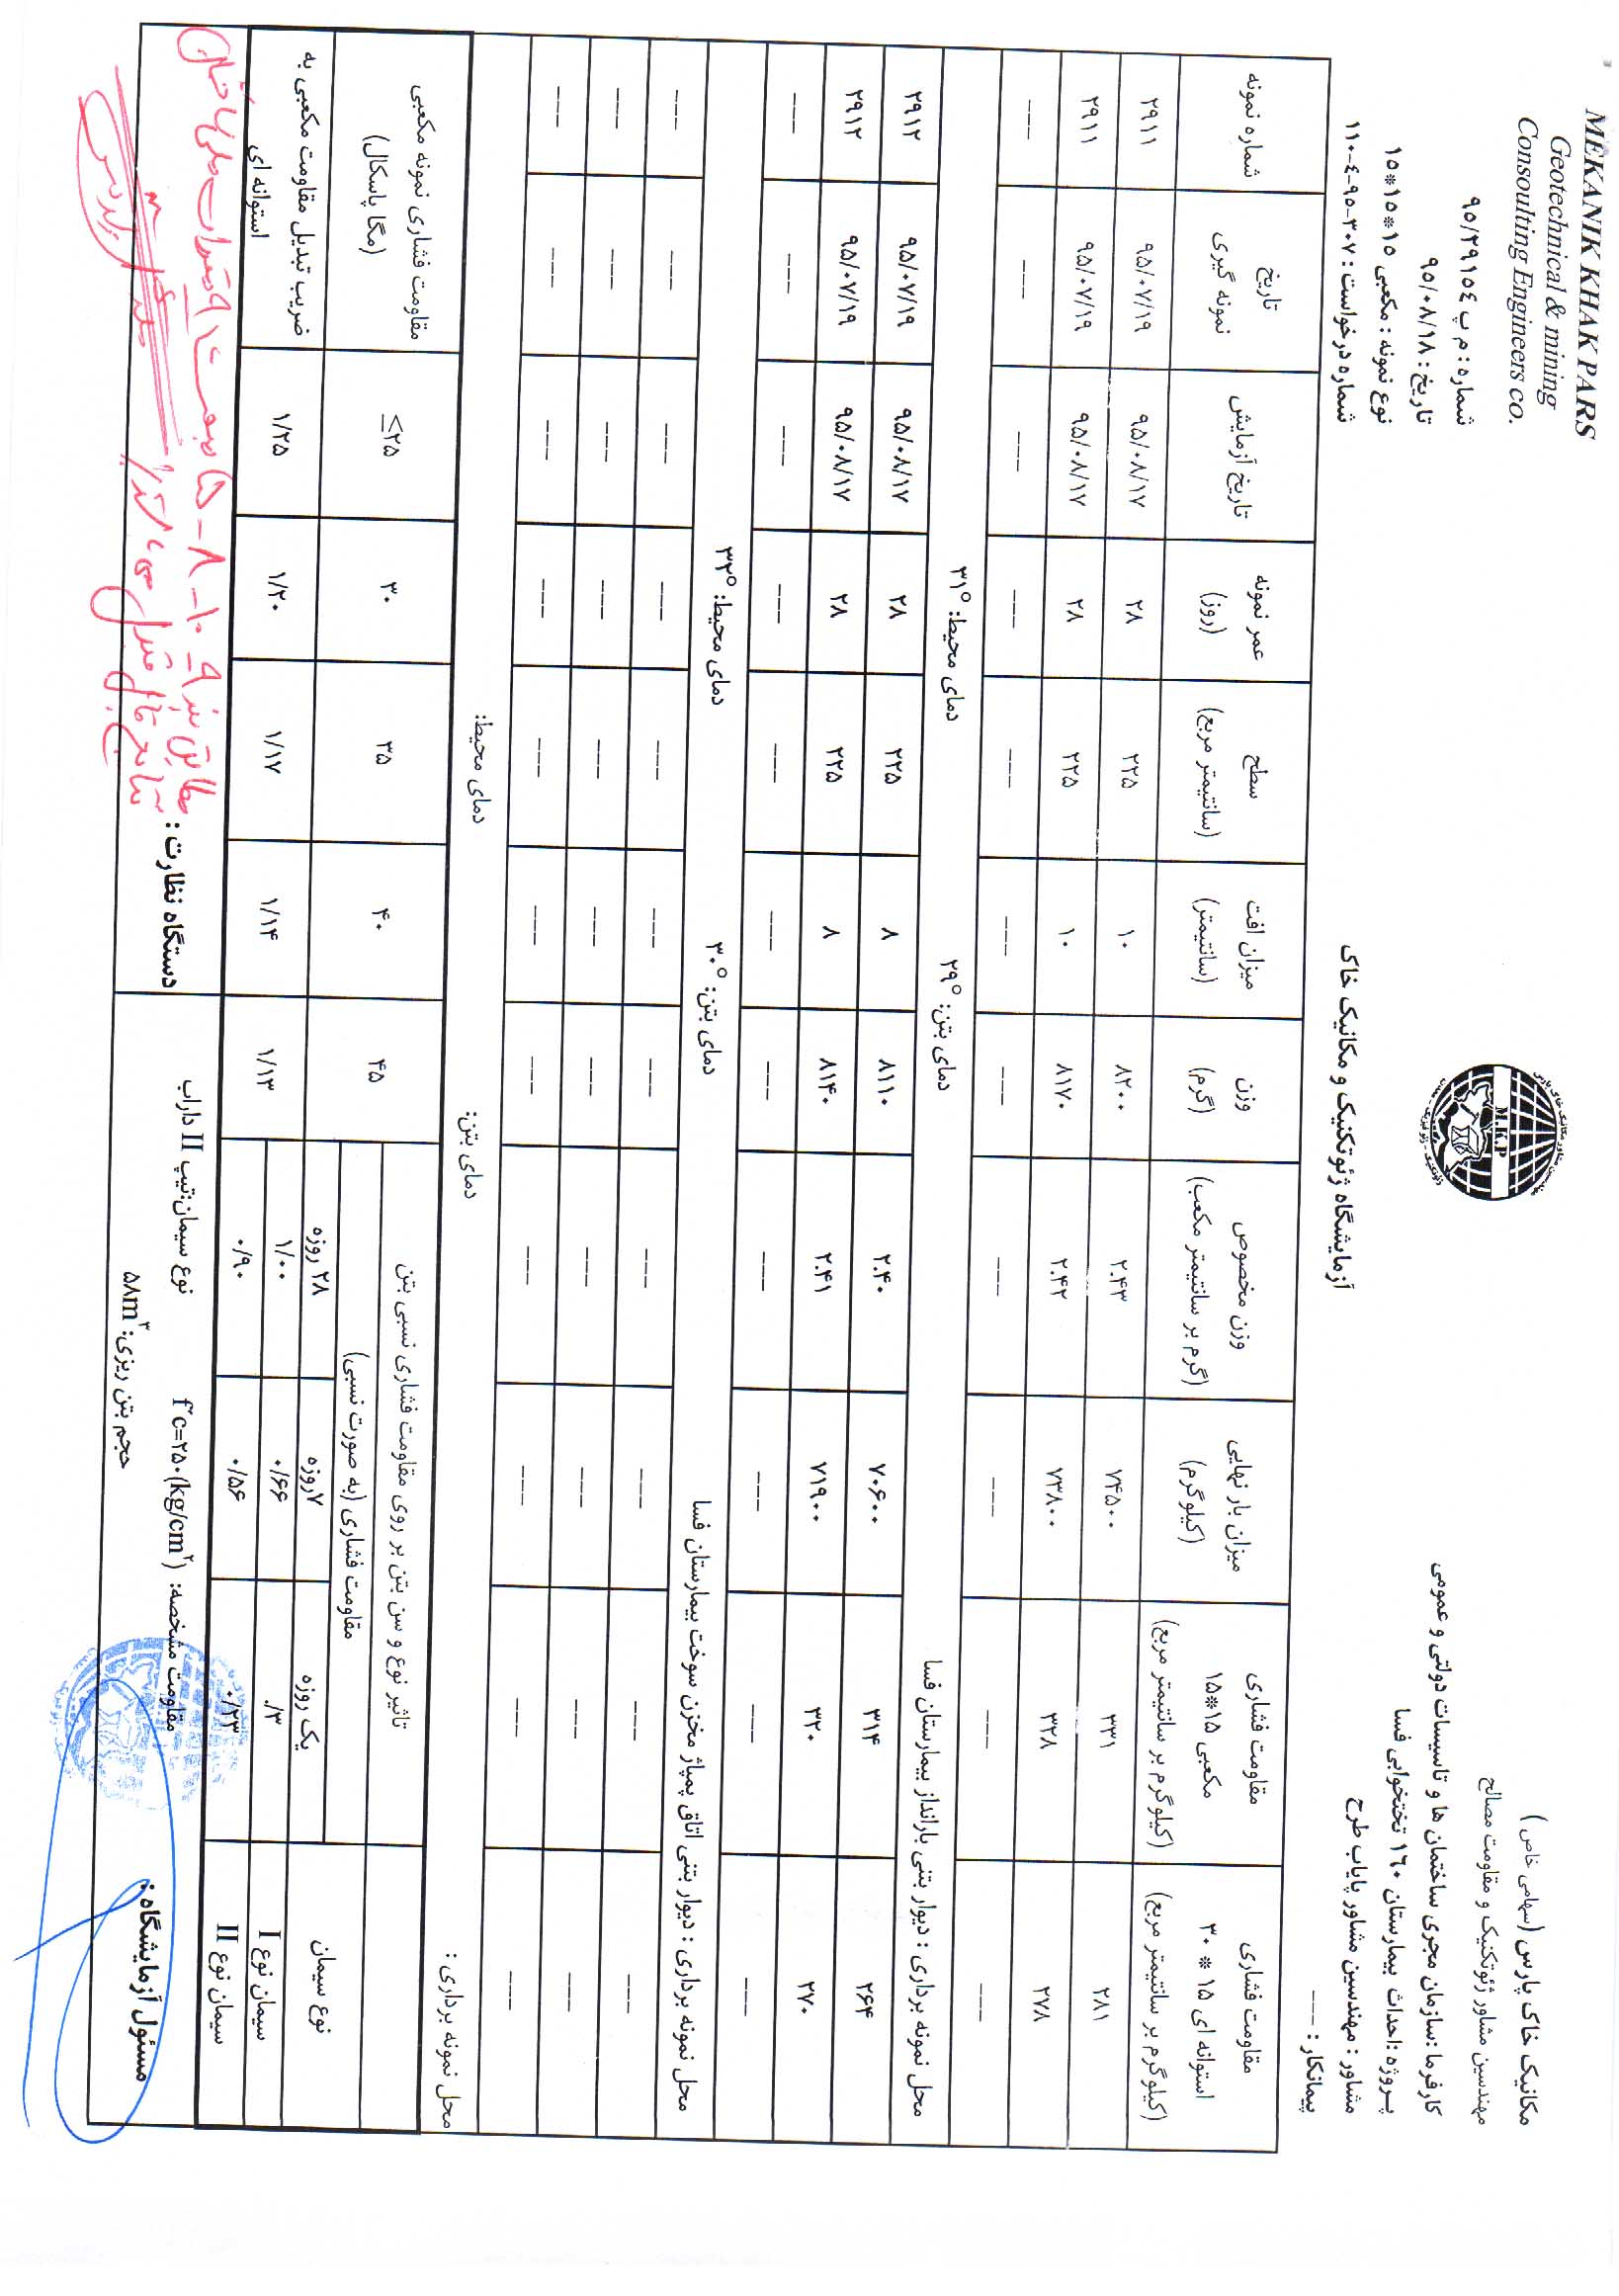 MEKANIK KHAK PARS
Geotechnical & mining
Consoulting Engineers co.
شماره : م پ ۹۵/۲۹۱۵٤
تاریخ : ۹۵/۰۸/۱۸
نوع نمونه : مکعبی ۱۵*۱۵*۱۵
شماره درخواست : ۳۰۷-۹۵-٤-۱۱۰
M.K.P
آزمایشگاه ژئوتکنیک و مکانیک خاک
مکانیک خاک پارس (سهامی خاص )
مهندسین مشاور ژئوتکنیک و مقاومت مصالح
کارفرما :سازمان مجری ساختمان ها و تاسیسات دولتی و عمومی
پروژه :احداث بیمارستان ۱٦۰ تختخوابی فسا
مشاور : مهندسین مشاور پایاب طرح
پیمانکار : ----
شماره نمونه | تاریخ نمونه گیری | تاریخ آزمایش | عمر نمونه (روز) | سطح (سانتیمتر مربع) | میزان افت (سانتیمتر) | وزن (گرم) | وزن مخصوص (گرم بر سانتیمتر مکعب) | میزان بار نهایی (کیلوگرم) | مقاومت فشاری مکعبی ۱۵*۱۵ (کیلوگرم بر سانتیمتر مربع) | مقاومت فشاری استوانه ای ۱۵ * ۳۰ (کیلوگرم بر سانتیمتر مربع)
۲۹۱۱ | ۹۵/۰۷/۱۹ | ۹۵/۰۸/۱۷ | ۲۸ | ۲۲۵ | ۱۰ | ۸۲۰۰ | ۲.۴۳ | ۷۴۵۰۰ | ۳۳۱ | ۲۸۱
۲۹۱۱ | ۹۵/۰۷/۱۹ | ۹۵/۰۸/۱۷ | ۲۸ | ۲۲۵ | ۱۰ | ۸۱۷۰ | ۲.۴۲ | ۷۳۸۰۰ | ۳۲۸ | ۲۷۸
--- | --- | --- | --- | --- | --- | --- | --- | --- | --- | ---
محل نمونه برداری : دیوار بتنی بارانداز بیمارستان فسا دمای بتن: ۲۹° دمای محیط: ۳۱°
۲۹۱۲ | ۹۵/۰۷/۱۹ | ۹۵/۰۸/۱۷ | ۲۸ | ۲۲۵ | ۸ | ۸۱۱۰ | ۲.۴۰ | ۷۰۶۰۰ | ۳۱۴ | ۲۶۴
۲۹۱۲ | ۹۵/۰۷/۱۹ | ۹۵/۰۸/۱۷ | ۲۸ | ۲۲۵ | ۸ | ۸۱۴۰ | ۲.۴۱ | ۷۱۹۰۰ | ۳۲۰ | ۲۷۰
--- | --- | --- | --- | --- | --- | --- | --- | --- | --- | ---
محل نمونه برداری : دیوار بتنی اتاق پمپاژ مخزن سوخت بیمارستان فسا دمای بتن: ۳۰° دمای محیط: ۳۲°
--- | --- | --- | --- | --- | --- | --- | --- | --- | --- | ---
--- | --- | --- | --- | --- | --- | --- | --- | --- | --- | ---
--- | --- | --- | --- | --- | --- | --- | --- | --- | --- | ---
محل نمونه برداری : دمای بتن: دمای محیط:
مقاومت فشاری نمونه مکعبی (مگا پاسکال) | ≤۲۵ | ۳۰ | ۳۵ | ۴۰ | ۴۵
ضریب تبدیل مقاومت مکعبی به استوانه ای | ۱/۲۵ | ۱/۲۰ | ۱/۱۷ | ۱/۱۴ | ۱/۱۳
تاثیر نوع و سن بتن بر روی مقاومت فشاری نسبی بتن
مقاومت فشاری (به صورت نسبی)
نوع سیمان | یک روزه | ۷روزه | ۲۸ روزه
سیمان نوع I | ۰/۳ | ۰/۶۶ | ۱/۰۰
سیمان نوع II | ۰/۲۳ | ۰/۵۶ | ۰/۹۰
دستگاه نظارت :
مطابق بند ۹-۱۰-۸-۵ مبحث ۹ مقررات ملی ساختمان
نتایج قابل قبول می باشد
نوع سیمان:تیپ II داراب
مقاومت مشخصه: f'c=۲۵۰(kg/cm۲)
حجم بتن ریزی: ۵۸m۳
مسئول آزمایشگاه :